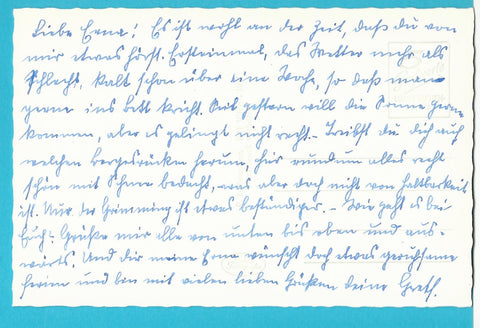 Liebe Erna! Es ist wohl an der Zeit, daß du von
mir etwas hörst. Ersteinmal, das Wetter mehr als
schlecht, kalt schon über eine Woche, so daß man
gerne ins Bett kricht. Seit gestern will die Sonne gerne
kommen, aber es gelingt nicht recht. - Treibst du dich auf
welchen Bergesrücken herum, hier rundum alles recht
schön mit Schnee bedacht, was aber doch nicht von Haltbarkeit
ist. Nur der Grimming ist etwas beständiger. - Wie geht es bei
Euch? Grüße mir alle von unten bis oben und aus-
wärts. Und dir meine Erna wünscht doch etwas geruhsame
Ferien und bin mit vielen lieben Grüßen deine Greth.